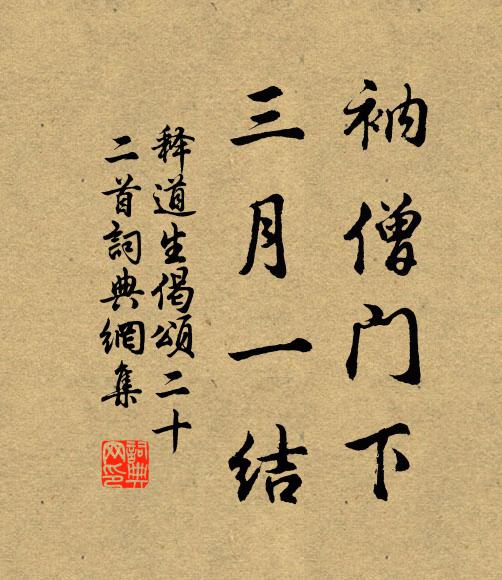 衲僧门下
三月一结
释道生偈頌二十
二首詞典網集
詞典
网印